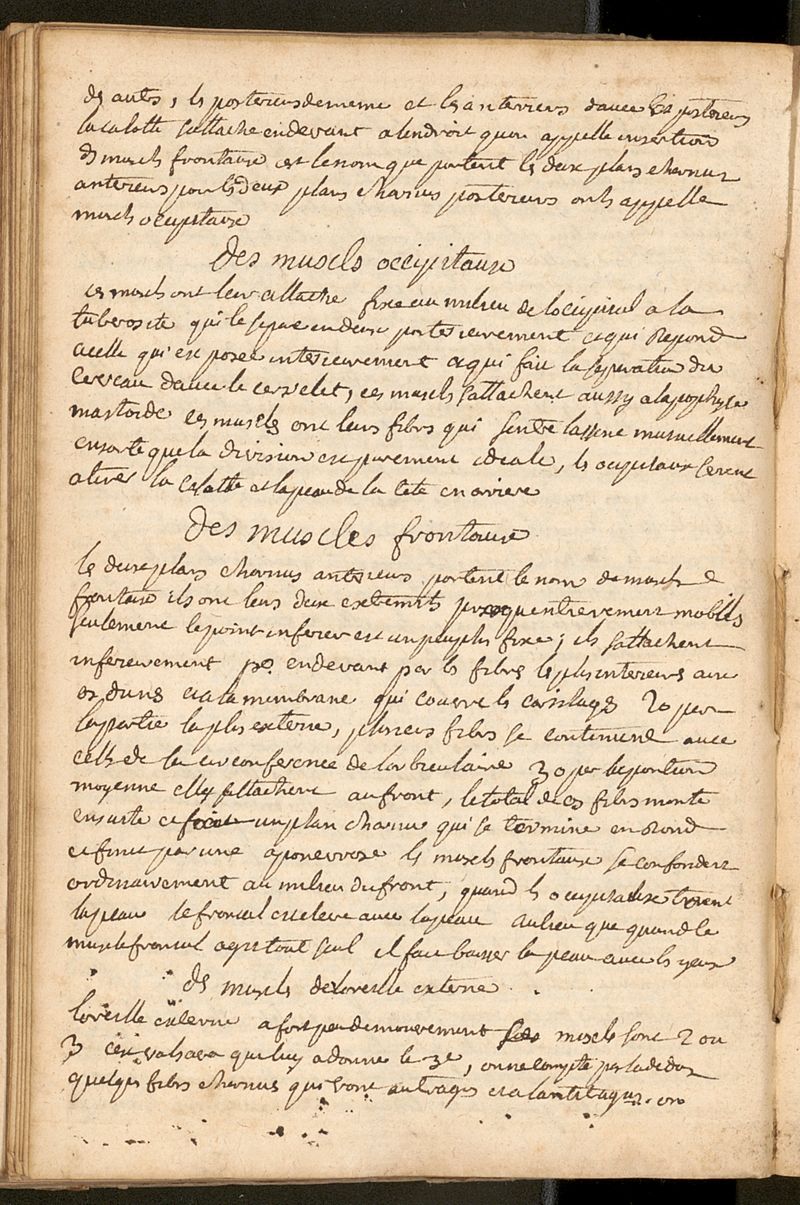 des autres, les posterieurs de meme et les anterieurs davec les posterieurs
la calotte sattache en devant a lendroit quon appelle insertion
des muscls frontaux est le nom que portent les deux plans charnus
anterieurs pour les deux plans charnus posterieurs on ls appelle
muscls occipitaux
Des muscls occipitaux
ces muscls ont leur attache fixe au milieu de loccipital a la
tuberosite qui le separe en deux posterieurement et qui repond
a celle qui est posee interieurement et qui fait la separation du
cerveau davec le cervelet, ces muscls sattachent aussy a lapophyse
mastoide ces muscls ont leurs fibrs qui sentre lassent mutuellement
ensorte que la division est purement ideale, ls occipitaux servent
a tirer la calotte et la peau de la tete en arriere
Des muscles frontaux
les deux plans charnus anterieurs portent le nom de muscls
frontaux ils ont leurs deux extremits presquentierement mobils
seulement le point inferieur est un peu plus fixe; ils sattachent
inferieurement po en devant par ls fibrs ls plus interieurs aux
os du nes et a la membrane qui couvre ls cartilags 2o par
la partie la plus externe, plusieurs fibrs se continuent avec
cells de la circonference de lorbiculaire 3o par la portion
moyenne ells sattachent au front, le total de ces fibrs monte
ensuite et un plan charnu qui se termine en rond
et finit par une aponevrose ls muscls frontaux se confondent
ordinairement au milieu du front, quand ls occipitaux tirent
la peau le frontal est eleve avec la peau au lieu que quand le
muscle frontal agit tout seul il fait baisser la peau avec ls yeux
des muscls de loreille externe
loreille externe a fort peu de mouvement ses muscls sont 2 ou
3 cest valsava qui luy a donne le 3e, on ne compte pas la dedans
quelqes fibrs charnus qui vont au tragus et a lantitragus. on